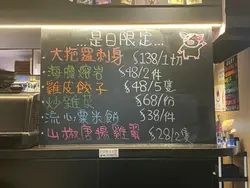 是日限定
大拖羅刺身 $138/1切
海膽熔岩 $48/2件
雞皮餃子 $48/5隻
炒雜皮 $68/份
流心粟米餅 $38/件
山椒唐揚雞翼 $28/2隻